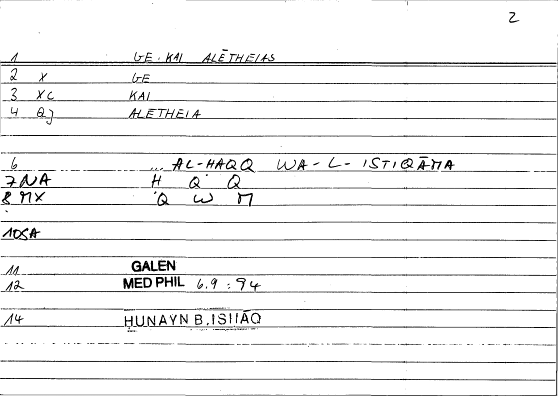 2
1 GE. KAI ALĒTHEIAS
2 X GE
3 XC KAI
4 QJ ALETHEIA
6 ... AL-HAQQ WA-L-ISTIQĀMA
7 NA H Q Q
8 MX Q W M
10 SA
11 GALEN
12 MED PHIL 6.9 : 94
14 ḤUNAYN B. ISḤĀQ